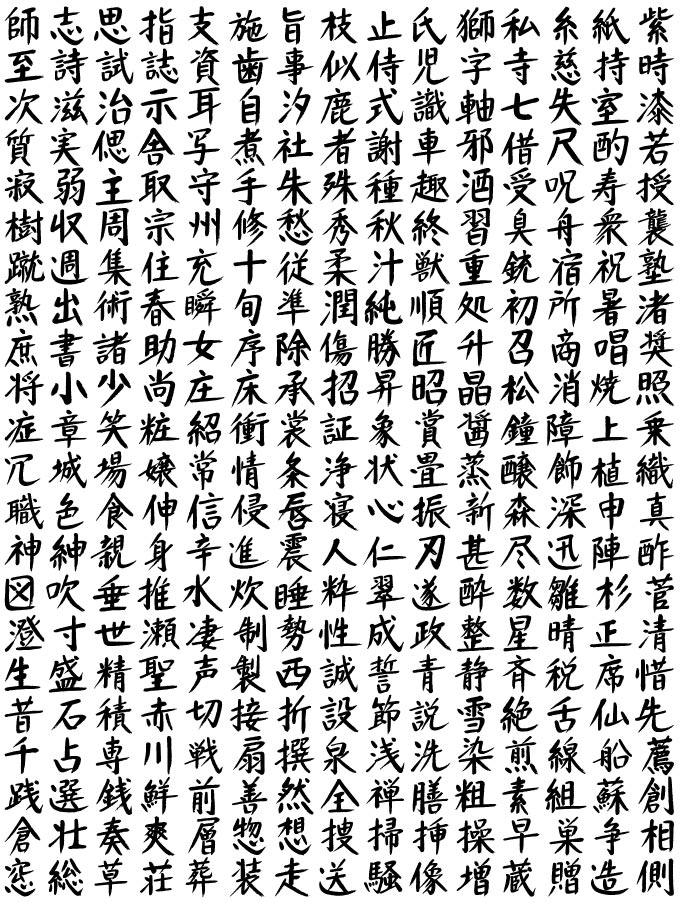 師志思指支施旨枝止氏獅私糸紙紫
至詩試誌資歯事似侍児字寺慈持時
次滋治示耳自汐鹿式識軸七失室漆
質実偲舎写煮社者謝車邪借尺酌若
寂弱主取守手朱殊種趣酒受呪寿授
樹収周宗州修愁秀秋終習臭舟衆襲
蹴週集住充十従柔汁獣重銃宿祝塾
熟出術春瞬旬準潤純順処初所暑渚
庶書諸助女序除傷勝匠升召商唱奨
将小少尚庄床承招昇昭晶松消焼照
症章笑粧紹衝裳証象賞醤鐘障上乗
冗城場嬢常情条浄状畳蒸醸飾植織
職色食伸信侵唇寝心振新森深申真
神紳親身辛進震人仁刃甚尽迅陣酢
吹垂推水炊睡粋翠遂酔数雛杉菅
澄寸世瀬凄制勢性成政整星晴正清
生盛精聖声製西誠誓青静斉税席惜
昔石積赤切接折設節説雪絶舌仙先
千占専川戦扇撰泉浅洗染煎線船薦
践選銭鮮前善然全禅膳粗素組蘇創
倉壮奏爽層惣想捜掃挿操早巣争相
窓総草荘葬装走送騒像増蔵贈造側